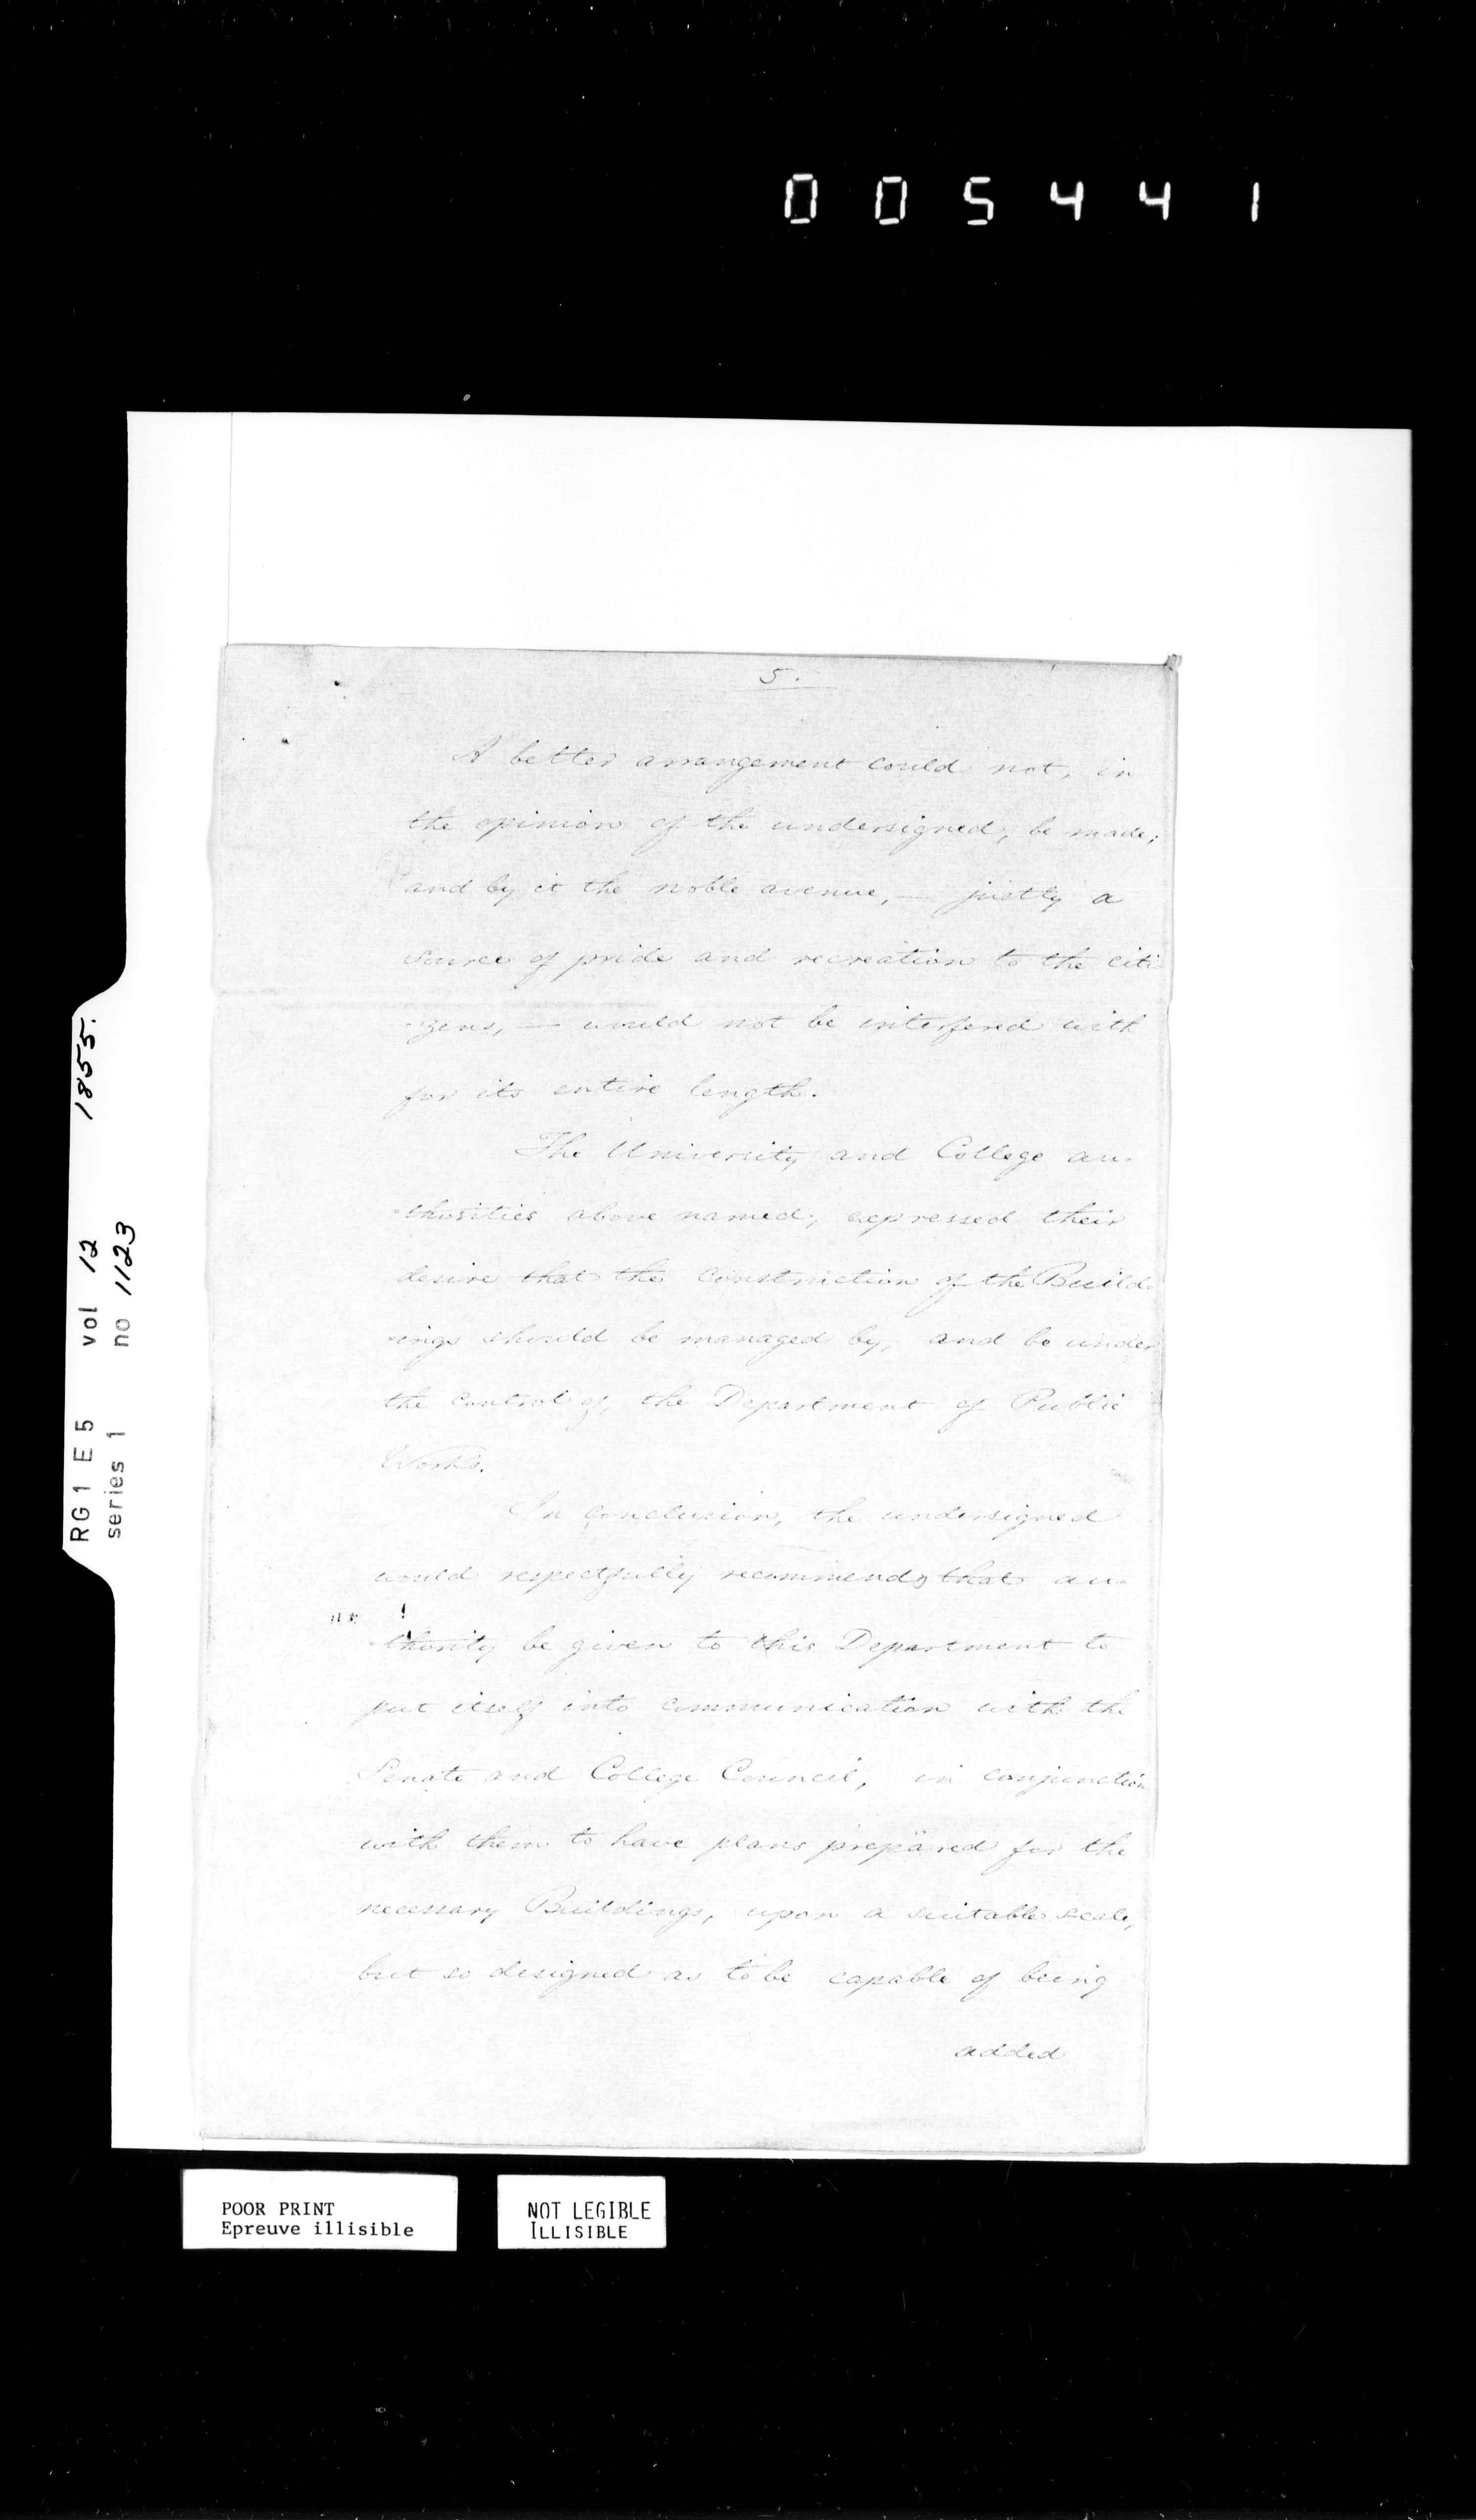 005441
5.
A better arrangement could not, in
the opinion of the undersigned, be made;
and by it the noble avenue, — justly a
source of pride and recreation to the citi
-zens, — would not be interfered with
for its entire length.
The University and College au-
-thorities above named, expressed their
desire that the construction of the Build-
-ings should be managed by, and be under
the control of, the Department of Public
Works.
In conclusion, the undersigned
would respectfully recommend, that au-
-thority be given to this Department to
put itself into communication with the
Senate and College Council, in conjunction
with them to have plans prepared for the
necessary Buildings, upon a suitable scale,
but so designed as to be capable of being
added
RG1 E5 vol 12 1855.
series 1 no 1123
POOR PRINT
Epreuve illisible
NOT LEGIBLE
ILLISIBLE